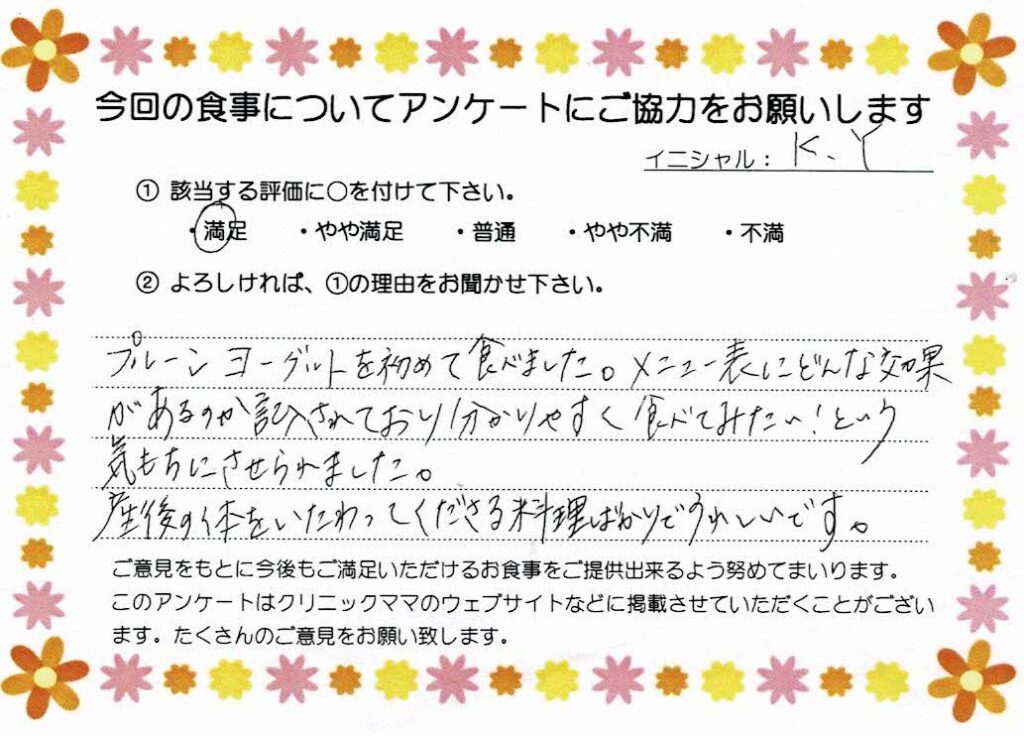 今回の食事についてアンケートにご協力をお願いします
イニシャル： K、Y
① 該当する評価に○を付けて下さい。
・満足 ・やや満足 ・普通 ・やや不満 ・不満
② よろしければ、①の理由をお聞かせ下さい。
プルーンヨーグルトを初めて食べました。メニュー表にどんな効果
があるのか記入されており分かりやすく食べてみたい！という
気もちにさせられました。
産後の体をいたわってくださる料理ばかりでうれしいです。
ご意見をもとに今後もご満足いただけるお食事をご提供出来るよう努めてまいります。
このアンケートはクリニックママのウェブサイトなどに掲載させていただくことがござい
ます。たくさんのご意見をお願い致します。